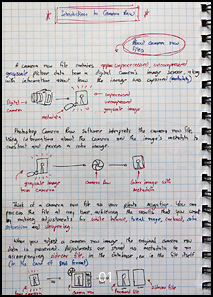 Introduction to Camera Raw
About camera raw
files
A camera raw file contains unprocessed, uncompressed
grayscale picture data from a digital camera's image sensor, along
with information about how the image was captured (metadata)
Digital
camera
metadata
uncompressed
grayscale
image
Photoshop Camera Raw software interprets the camera raw file,
using information about the camera and the image's metadata to
construct and process a color image.
grayscale image
from camera
Camera Raw
Color image with
metadata
Think of a camera raw file as your photo negative. You can
process the file at any time, achieving the results that you want
by making adjustments for white balance, tonal range, contrast, color
saturation and sharpening.
When you adjust a camera raw image, the original camera raw
data is preserved. Adjustments are stored as metadata in an
accompanying sidecar file, in the database, or in the file itself
(in the case of DNG format).
01
camera raw
sidecar file